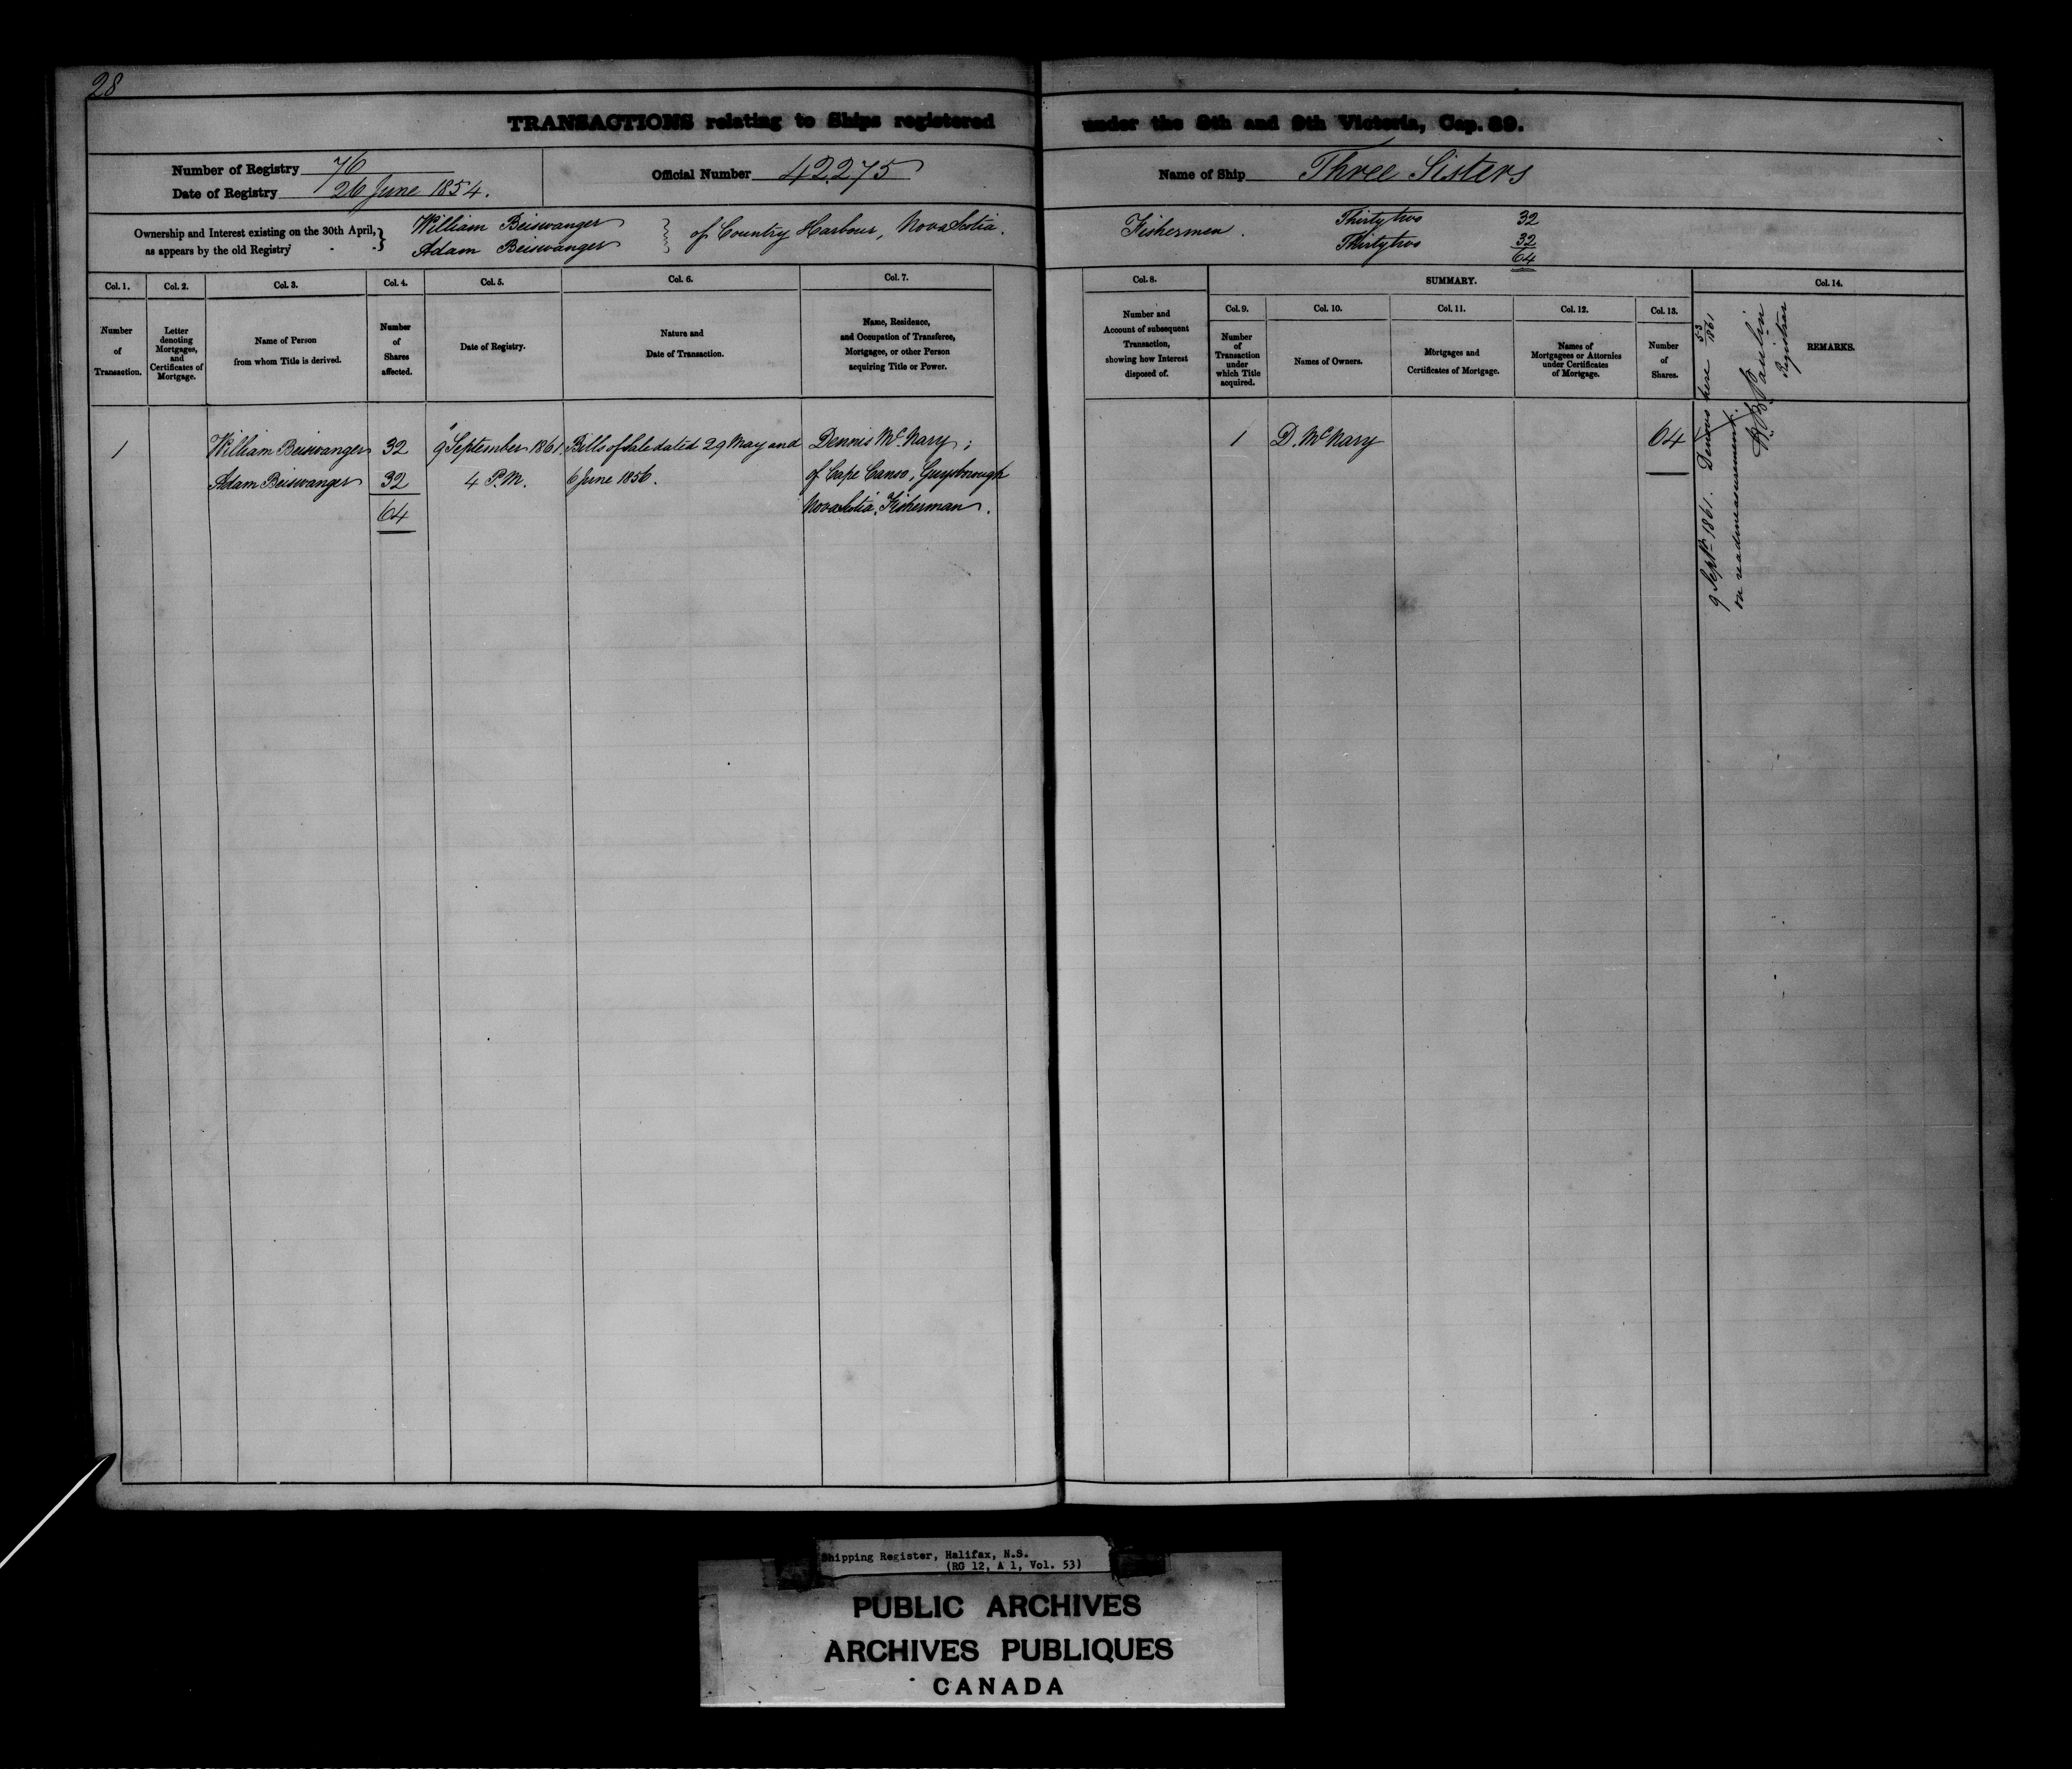 28
TRANSACTIONS relating to Ships registered under the 8th and 9th Victoria, Cap. 89.
Number of Registry 76
Date of Registry 26 June 1854.
Official Number 42275
Name of Ship Three Sisters
Ownership and Interest existing on the 30th April,
as appears by the old Registry
William Beiswanger
Adam Beiswanger
of Country Harbour, Nova Scotia.
Fishermen.
Thirty two 32
Thirty two 32
64
Col. 1.
Number
of
Transaction.
Col. 2.
Letter
denoting
Mortgages,
and
Certificates of
Mortgage.
Col. 3.
Name of Person
from whom Title is derived.
Col. 4.
Number
of
Shares
affected.
Col. 5.
Date of Registry.
Col. 6.
Nature and
Date of Transaction.
Col. 7.
Name, Residence,
and Occupation of Transferee,
Mortgagee, or other Person
acquiring Title or Power.
Col. 8.
Number and
Account of subsequent
Transaction,
showing how Interest
disposed of.
SUMMARY.
Col. 9.
Number
of
Transaction
under
which Title
acquired.
Col. 10.
Names of Owners.
Col. 11.
Mortgages and
Certificates of Mortgage.
Col. 12.
Names of
Mortgagees or Attornies
under Certificates
of Mortgage.
Col. 13.
Number
of
Shares.
Col. 14.
REMARKS.
1 William Beiswanger 32 9 September 1861 Bills of Sale dated 29 May and Dennis McNary;
Adam Beiswanger 32 4 P.M. 6 June 1856. of Cape Canso, Guysborough
64 Nova Scotia, Fisherman.
1 D. McNary 64
9 Septr 1861. Denovo here 53 1861
on readmeasurement.
Registrar
Shipping Register, Halifax, N.S.
(RG 12, A 1, Vol. 53)
PUBLIC ARCHIVES
ARCHIVES PUBLIQUES
CANADA